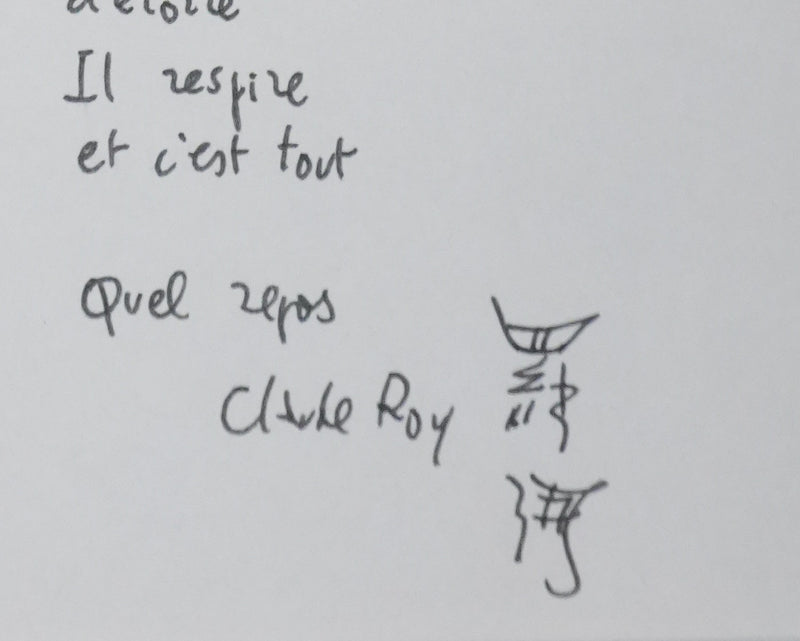 d'étoile
Il respire
et c'est tout
Quel repos
Claude Roy